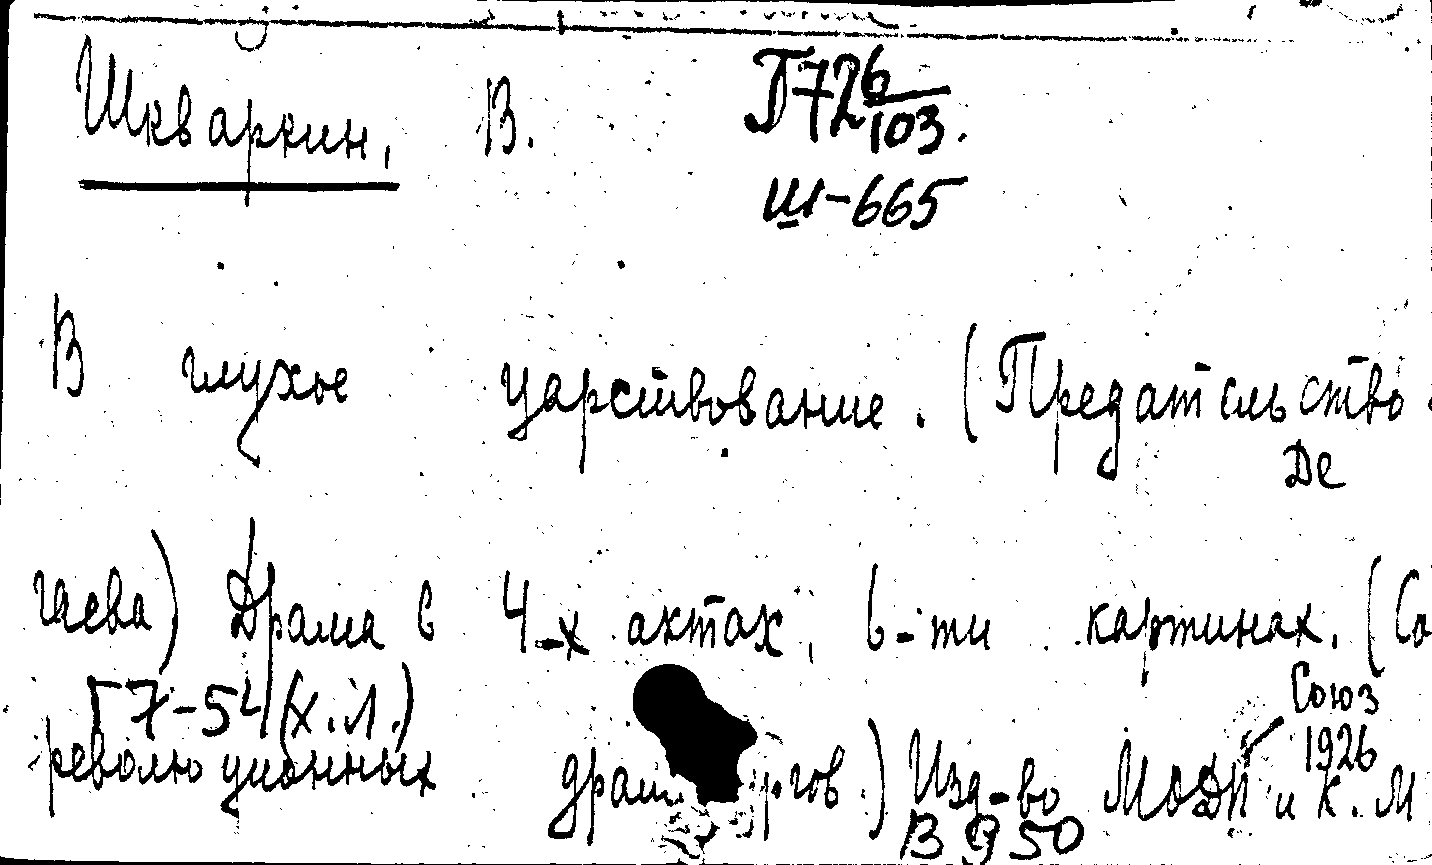 Шкваркин, В. Г726/103.
Ш-665
В глухое царствование. (Предательство
Де
гаева) Драма в 4-х актах, 6-ти картинах. (Со
Г7-54(х.л.) Союз
1926
революционных драм ргов.) Изд-во МОДП и К. М
В 950